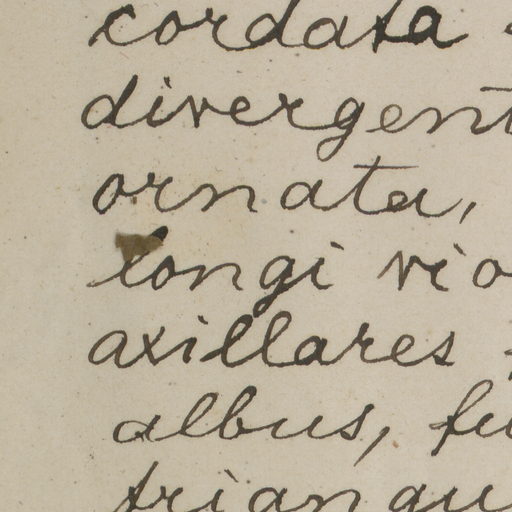 cordata
divergent
ornata,
longi vio
axillares
albus, fu
triangu